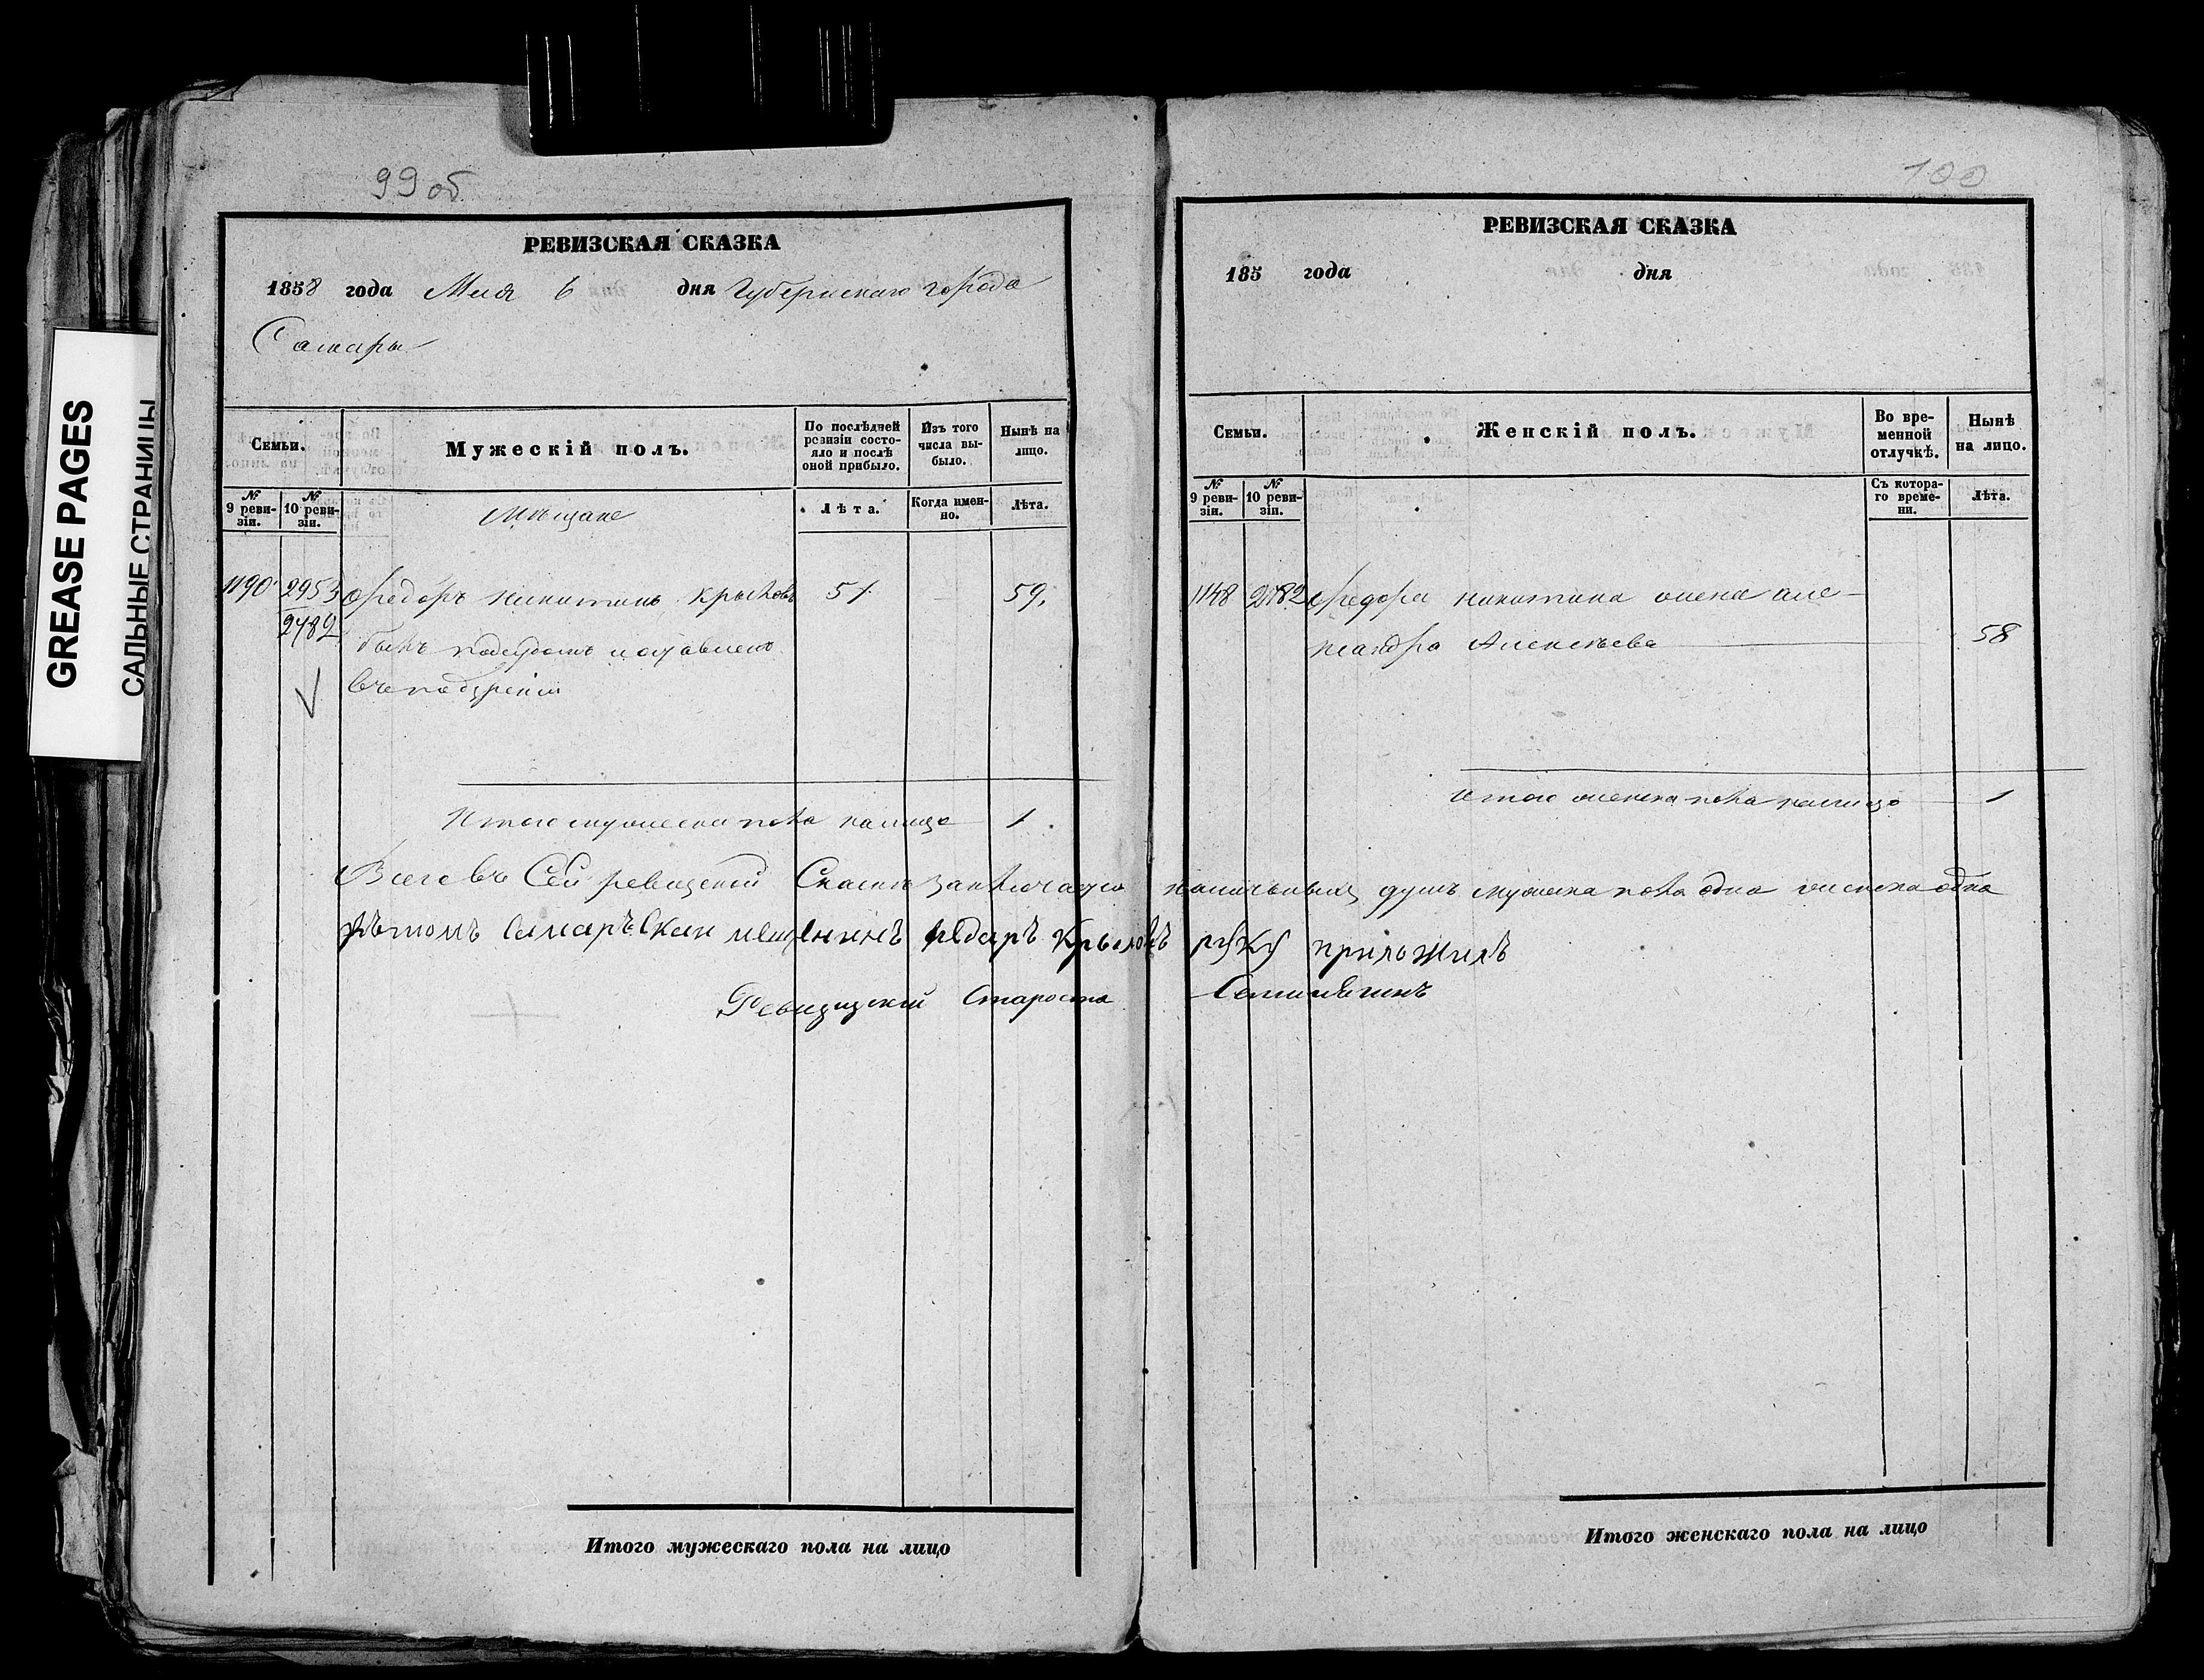 GREASE PAGES
САЛЬНЫЕ СТРАНИЦЫ
99 об
РЕВИЗСКАЯ СКАЗКА
1858 года Мая 6 дня Губернскаго города
Самары
Семьи.
Мужескій полъ.
По послѣдней ревизіи состояло и послѣ оной прибыло.
Изъ того числа выбыло.
Нынѣ на лицо.
№ 9 ревизіи.
№ 10 ревизіи.
Мѣщане
Лѣта.
Когда именно.
Лѣта.
1190 2953 Федоръ Никитинъ Крыловъ 51 59.
2482 былъ подсудомъ и оставленъ
въ подозреніи
Итого мужеска пола налицо 1.
100
РЕВИЗСКАЯ СКАЗКА
185 года дня
Семьи.
Женскій полъ.
Во временной отлучкѣ.
Нынѣ на лицо.
№ 9 ревизіи.
№ 10 ревизіи.
Съ котораго времени.
Лѣта.
1148 2482 Федора Никитина жена Але-
ксандра Алексѣева 58
Итого женска пола налицо 1
Всего въ Сей ревизской Сказкѣ заключается наличныхъ душъ мужеска пола одна женска одна
мещенинъ Крыловъ руку приложилъ
Ревизской Староста
Итого мужескаго пола на лицо
Итого женскаго пола на лицо